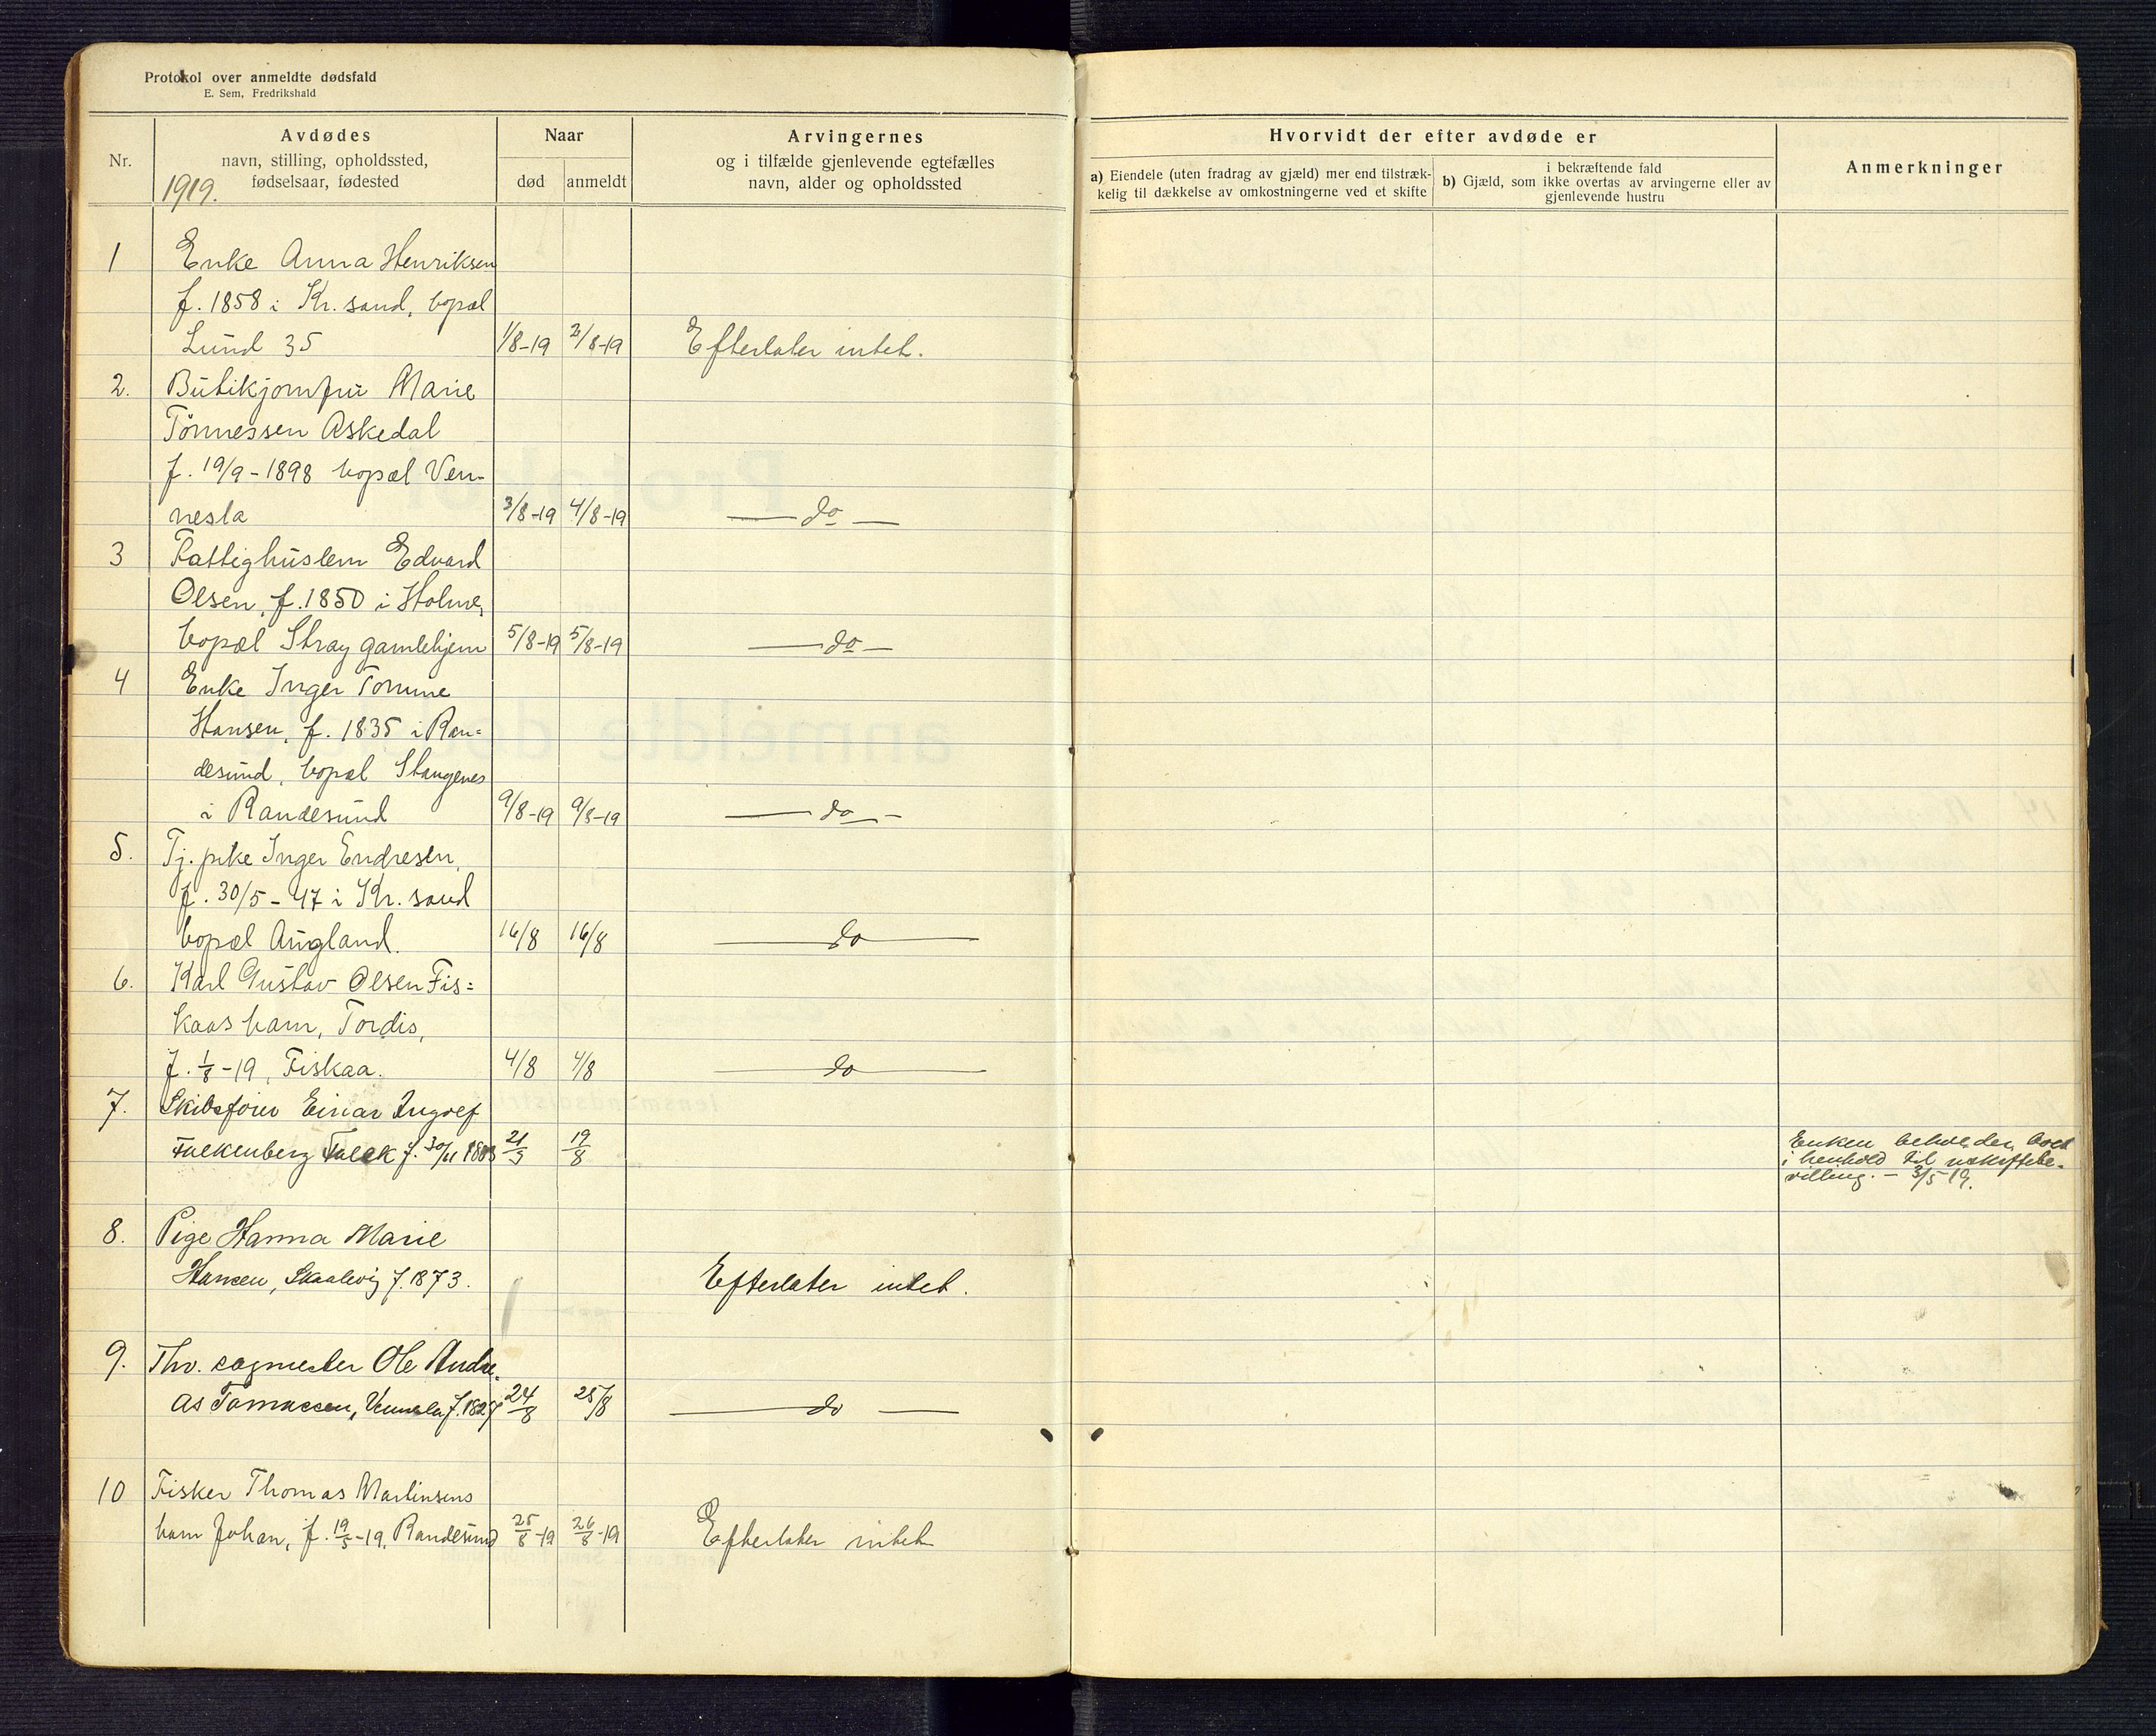 Protokol over anmeldte dødsfald
E. Sem, Fredrikshald
Nr.
Avdødes
navn, stilling, opholdssted,
fødselsaar, fødested
1919.
Naar
død
anmeldt
Arvingernes
og i tilfælde gjenlevende egtefælles
navn, alder og opholdssted
Hvorvidt der efter avdøde er
a) Eiendele (uten fradrag av gjæld) mer end tilstræk-
kelig til dækkelse av omkostningerne ved et skifte
i bekræftende fald
b) Gjæld, som ikke overtas av arvingerne eller av
gjenlevende hustru
Anmerkninger
1 Enke Anna Henriksen
f. 1858 i Kr.sand, bopæl
Lund 35 1/8-19 2/8-19 Efterlater intet.
2. Butikjomfru Marie
Tønnessen Askedal
f. 19/9-1898 bopæl Ven-
nesla 3/8-19 4/8-19 do
3 Fattighuslem Edvard
Olsen, f. 1850 i Holme,
bopæl Stray gamlehjem 5/8-19 5/8-19 do
4 Enke Inger Tomine
Hansen, f. 1835 i Ran=
desund, bopæl Stangenes
i Randesund 9/8-19 9/8-19 do
5. Tj. pike Inger Endresen,
f. 30/5-47 i Kr.sand
bopæl Augland. 16/8 16/8 do
6. Karl Gustav Olsen Fis=
kaas barn, Tordis,
f. 1/8-19, Fiskaa. 4/8 4/8 do
7. Skibsfører Einar Ingolf
Falkenberg Falck f. 30/11 1883 21/3 19/8
Enken beholder boet
i henhold til uskiftebe-
villing. - 3/5 19.
8. Pige Hanna Marie
Hansen, Skaalevig f. 1873. Efterlater intet.
9. Fhv. sagmester Ole Andre-
as Tomassen, Vennesla f. 1827 24/8 25/8 do
10 Fisker Thomas Martinsens
barn Johan, f. 19/5-19, Randesund 25/8-19 26/8-19 Efterlater intet